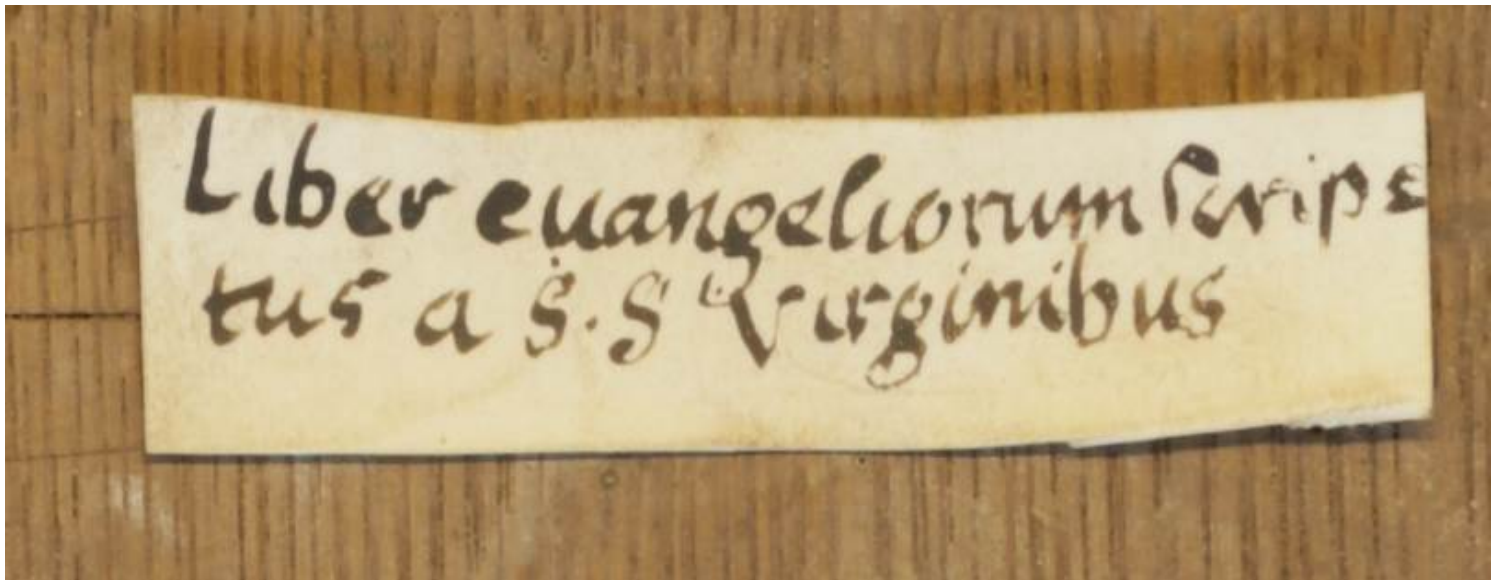 Liber euangeliorum scrips
tus a S.S Virginibus